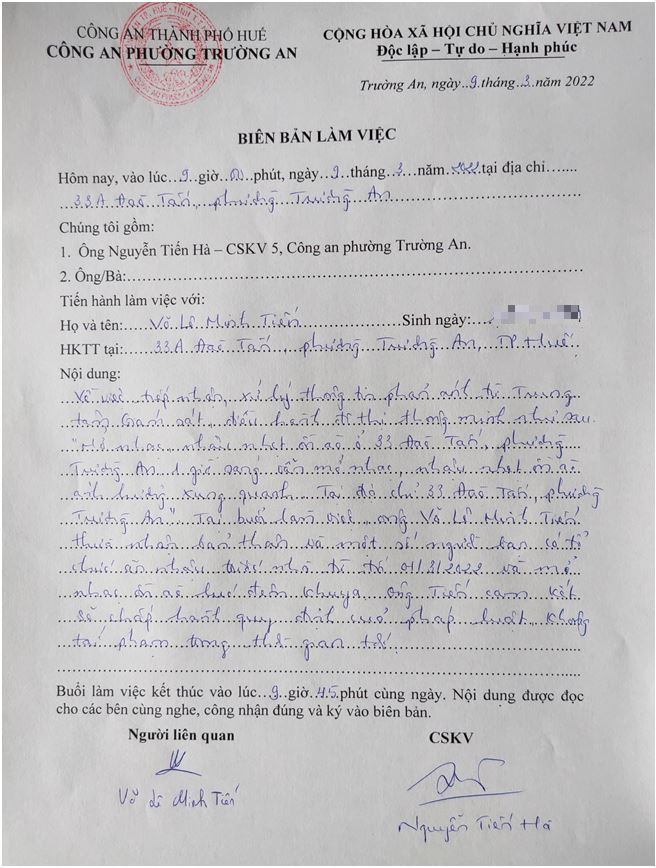 CÔNG AN THÀNH PHỐ HUẾ
CÔNG AN PHƯỜNG TRƯỜNG AN
CỘNG HÒA XÃ HỘI CHỦ NGHĨA VIỆT NAM
Độc lập – Tự do – Hạnh phúc
Trường An, ngày 9 tháng 3 năm 2022
BIÊN BẢN LÀM VIỆC
Hôm nay, vào lúc 9 giờ 00 phút, ngày 9 tháng 3 năm 2022 tại địa chỉ
33A Đào Tấn, phường Trường An
Chúng tôi gồm:
1. Ông Nguyễn Tiến Hà – CSKV 5, Công an phường Trường An.
2. Ông/Bà:
Tiến hành làm việc với:
Họ và tên: Võ Lê Minh Tiến Sinh ngày:
HKTT tại: 33A Đào Tấn, phường Trường An, TP Huế
Nội dung:
Về việc tiếp nhận, xử lý thông tin phản ánh từ Trung
tâm Giám sát, điều hành đô thị thông minh như sau:
"Mở nhạc, nhậu nhẹt ồn ào ở 33 Đào Tấn, phường
Trường An 1 giờ sáng vẫn mở nhạc, nhậu nhẹt ồn ào
ảnh hưởng xung quanh. Tại địa chỉ 33 Đào Tấn, phường
Trường An". Tại buổi làm việc ông Võ Lê Minh Tiến
thừa nhận bản thân và một số người bạn có tổ
chức ăn nhậu trước nhà từ tối 01/3/2022 và mở
nhạc ồn ào lúc đêm khuya, ông Tiến cam kết
sẽ chấp hành quy định của pháp luật, không
tái phạm trong thời gian tới.
Buổi làm việc kết thúc vào lúc 9 giờ 45 phút cùng ngày. Nội dung được đọc
cho các bên cùng nghe, công nhận đúng và ký vào biên bản.
Người liên quan
CSKV
Võ Lê Minh Tiến
Nguyễn Tiến Hà